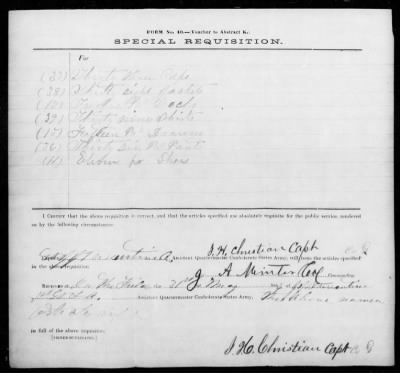 FORM No. 40.—Voucher to Abstract K.
SPECIAL REQUISITION.
For
(39) Thirty Nine Caps
(38) Thirty eight Jackets
(39) Thirty nine Shirts
(15) Fifteen Pr Drawers
(36) Thirty Six Pr Pants
(11) Eleven pr Shoes
I CERTIFY that the above requisition is correct, and that the articles specified are absolutely requisite for the public service, rendered so
by the following circumstances:
J. H. Christian Capt Co D
Assistant Quartermaster Confederate States Army, will issue the articles specified
in the above requisition.
J A Minter Col
Commanding.
RECEIVED 31st May
Assistant Quartermaster Confederate States Army, The above named
in full of the above requisition.
[SIGNED DUPLICATES.]
J. H. Christian Capt Co D